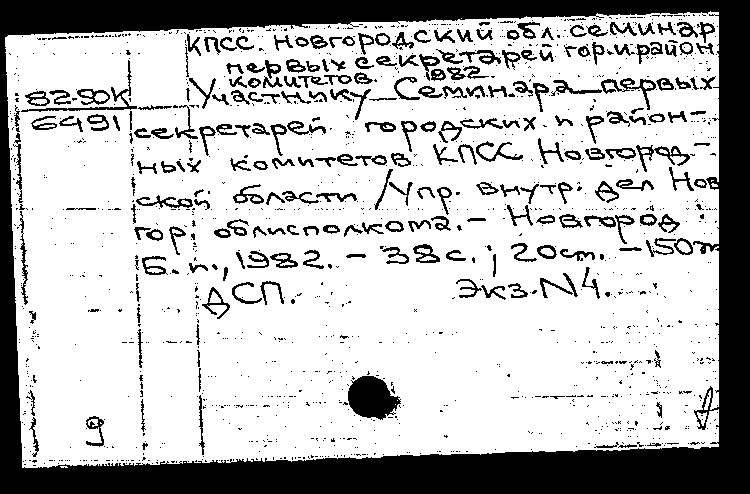 КПСС. Новгородский обл. семинар
первых секретарей гор. и район.
комитетов. 1982.
82-80К
6491
Участнику Семинара первых
секретарей городских и район-
ных комитетов КПСС Новгород-
ской области / Упр. внутр. дел Нов
гор. облисполкома. – Новгород :
Б. и., 1982. – 38 с. ; 20 см. – 150
ДСП. Экз. N4.
9